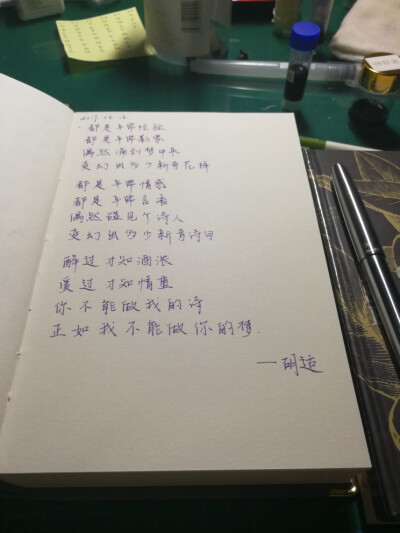 都是平常经验
都是平常影象
偶然涌到梦中来
变幻出多少新奇花样
都是平常情感
都是平常言语
偶然碰见个诗人
变幻出多少新奇诗句
醉过才知酒浓
爱过才知情重
你不能做我的诗
正如我不能做你的梦.
—胡适